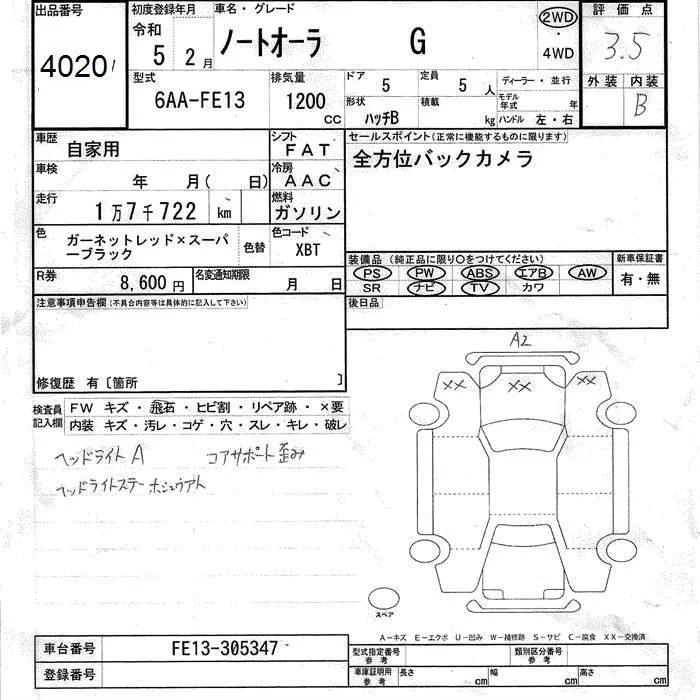 出品番号
4020
初度登録年月
令和
5 2月
車名・グレード
ノートオーラ G
2WD
・
4WD
評価点
3.5
外装 内装
B
型式
6AA-FE13
排気量
1200
cc
ドア 5
定員 5 人
ディーラー・並行
形状 ハッチB
積載 kg
モデル年式 年
ハンドル 左・右
車歴 自家用
シフト FAT
車検 年 月( 日)
冷房 AAC
走行 1万7千722 km
燃料 ガソリン
色 ガーネットレッド×スーパ
ーブラック
色替
色コード XBT
R券 8,600円
名変通知期限 月 日
セールスポイント(正常に機能するものに限ります)
全方位バックカメラ
装備品(純正品に限り〇をつけてください)
PS PW ABS エアB AW
SR ナビ TV カワ
新車保証書
有・無
後日品
注意事項申告欄(不具合内容等は具体的に記入して下さい)
修復歴 有〔箇所 〕
検査員
記入欄
FW キズ・飛石・ヒビ割・リペア跡・×要
内装 キズ・汚レ・コゲ・穴・スレ・キレ・破レ
ヘッドライトA コアサポート歪み
ヘッドライトステー ホシュウアト
A2
XX XX XX
スペア
A-キズ E-エクボ U-凹み W-補修跡 S-サビ C-腐食 XX-交換済
車台番号 FE13-305347
登録番号
型式指定番号
参考
類別区分番号
参考
車庫証明用
参考
長さ cm
幅 cm
高さ cm